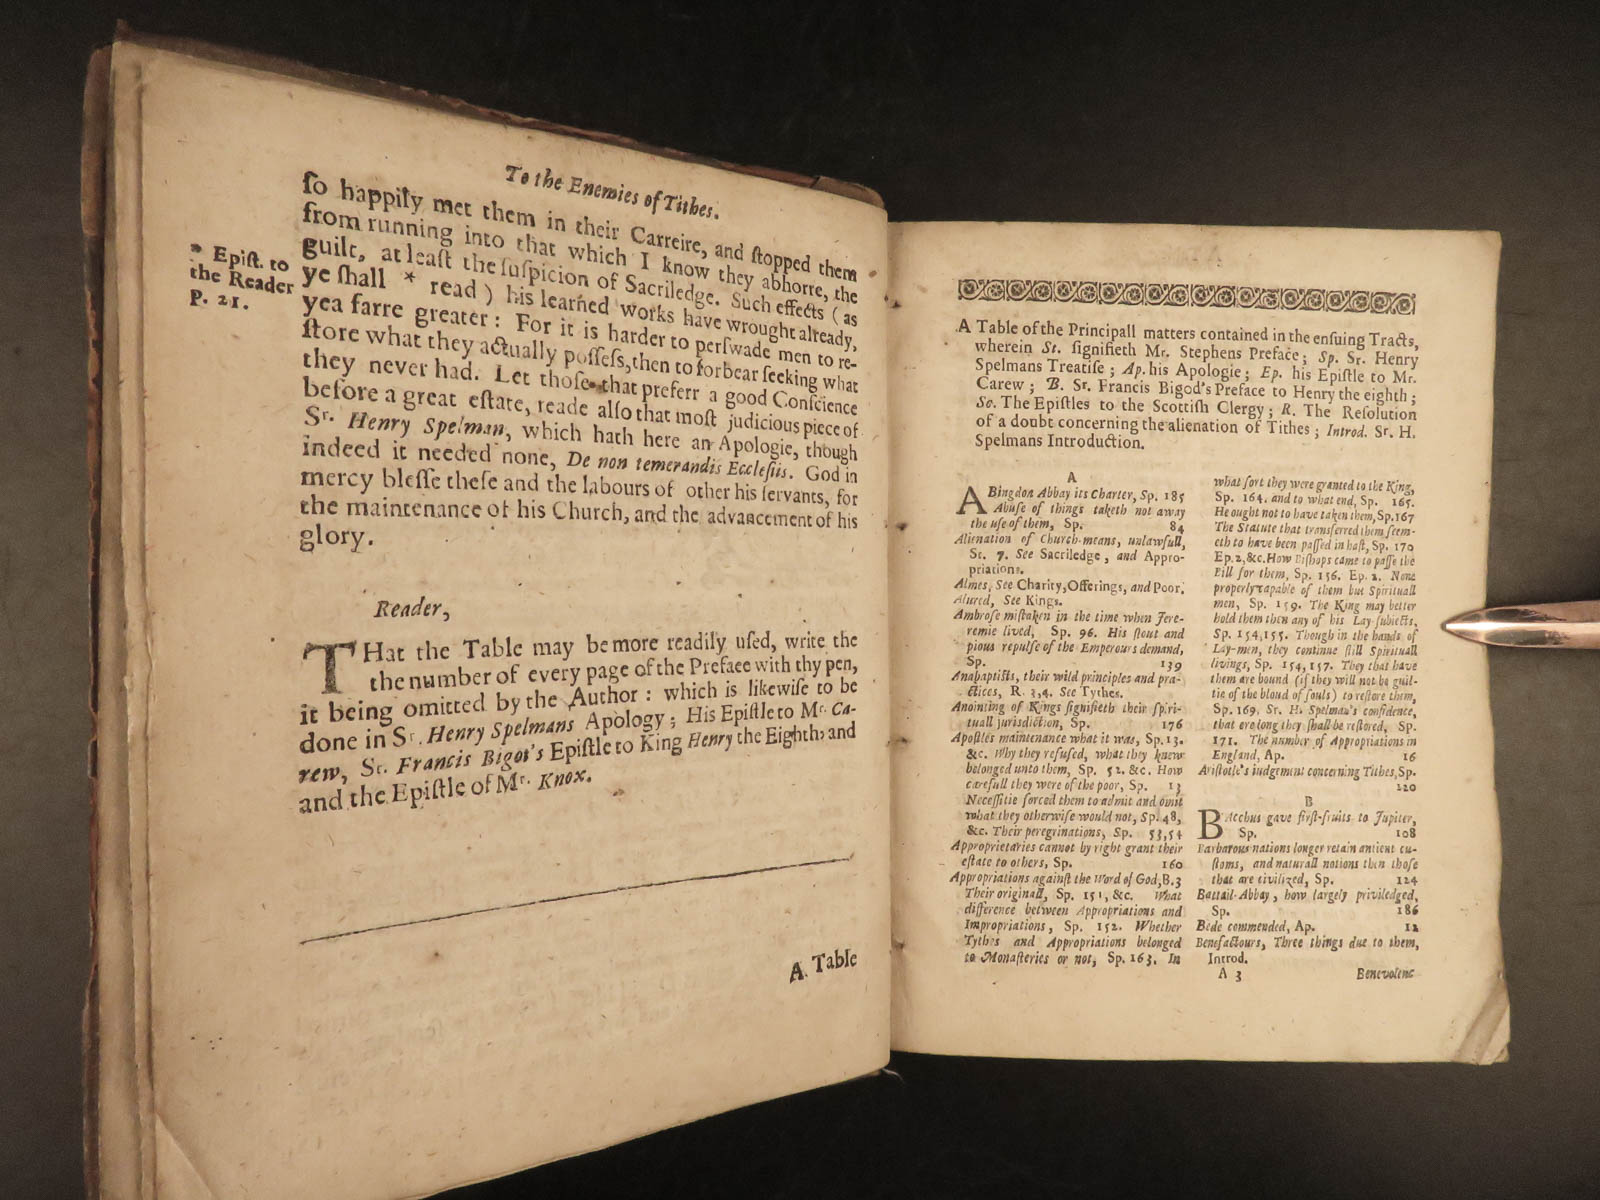 To the Enemies of Tithes.
ſo happily met them in their Carreire, and ſtopped them
from running into that which I know they abhorre, the
guilt, at leaſt the ſuſpicion of Sacriledge. Such effects (as
ye ſhall * read) his learned works have wrought already,
yea farre greater: For it is harder to perſwade men to re-
ſtore what they actually poſſeſs, then to forbear ſeeking what
they never had. Let thoſe that preferr a good Conſcience
before a great eſtate, reade alſo that moſt judicious piece of
Sr. Henry Spelman, which hath here an Apologie, though
indeed it needed none, De non temerandis Eccleſiis. God in
mercy bleſſe theſe and the labours of other his ſervants, for
the maintenance of his Church, and the advancement of his
glory.
* Epiſt. to
the Reader
P. 21.
Reader,
THat the Table may be more readily uſed, write the
the number of every page of the Preface with thy pen,
it being omitted by the Author: which is likewiſe to be
done in Sr. Henry Spelmans Apology; His Epiſtle to Mr. Ca-
rew, Sr. Francis Bigot's Epiſtle to King Henry the Eighth, and
and the Epiſtle of Mr. Knox.
A Table
A Table of the Principall matters contained in the enſuing Tracts,
wherein St. ſignifieth Mr. Stephens Preface; Sp. Sr. Henry
Spelmans Treatiſe; Ap. his Apologie; Ep. his Epiſtle to Mr.
Carew; B. Sr. Francis Bigod's Preface to Henry the eighth;
Sc. The Epiſtles to the Scottiſh Clergy; R. The Reſolution
of a doubt concerning the alienation of Tithes; Introd. Sr. H.
Spelmans Introduction.
A
ABingdon Abbay its Charter, Sp. 185
Abuſe of things taketh not away
the uſe of them, Sp. 84
Alienation of Church-means, unlawfull,
St. 7. See Sacriledge, and Appro-
priations.
Almes, See Charity, Offerings, and Poor.
Alured, See Kings.
Ambroſe miſtaken in the time when Jere-
remie lived, Sp. 96. His ſtout and
pious repulſe of the Emperours demand,
Sp. 139
Anabaptiſts, their wild principles and pra-
ctices, R. 3,4. See Tythes.
Anointing of Kings ſignifieth their ſpiri-
tuall juriſdiction, Sp. 176
Apoſtles maintenance what it was, Sp. 13.
&c. Why they refuſed, what they knew
belonged unto them, Sp. 52. &c. How
carefull they were of the poor, Sp. 13
Neceſſitie forced them to admit and omit
what they otherwiſe would not, Sp. 48,
&c. Their peregrinations, Sp. 53,54
Approprietaries cannot by right grant their
eſtate to others, Sp. 160
Appropriations againſt the Word of God, B.3
Their originall, Sp. 151, &c. What
difference between Appropriations and
Impropriations, Sp. 152. Whether
Tythes and Appropriations belonged
to Monaſteries or not, Sp. 163. In
what ſort they were granted to the King,
Sp. 164. and to what end, Sp. 165.
He ought not to have taken them, Sp.167
The Statute that transferred them ſeem-
eth to have been paſſed in haſt, Sp. 170
Ep.2,&c. How Biſhops came to paſſe the
Bill for them, Sp. 156. Ep. 2. None
properly capable of them but Spirituall
men, Sp. 159. The King may better
hold them then any of his Lay-ſubjects,
Sp. 154,155. Though in the hands of
Lay-men, they continue ſtill Spirituall
livings, Sp. 154,157. They that have
them are bound (if they will not be guil-
tie of the bloud of ſouls) to reſtore them,
Sp. 169. Sr. H. Spelman's confidence,
that ere long they ſhall be reſtored, Sp.
171. The number of Appropriations in
England, Ap. 16
Ariſtotle's judgement concerning Tithes, Sp.
120
B
BAcchus gave firſt-fruits to Jupiter,
Sp. 108
Barbarous nations longer retain antient cu-
ſtoms, and naturall notions then thoſe
that are civilized, Sp. 124
Battail-Abbay, how largely priviledged,
Sp. 186
Bede commended, Ap. 12
Benefactours, Three things due to them,
Introd.
A 3
Benevolenc